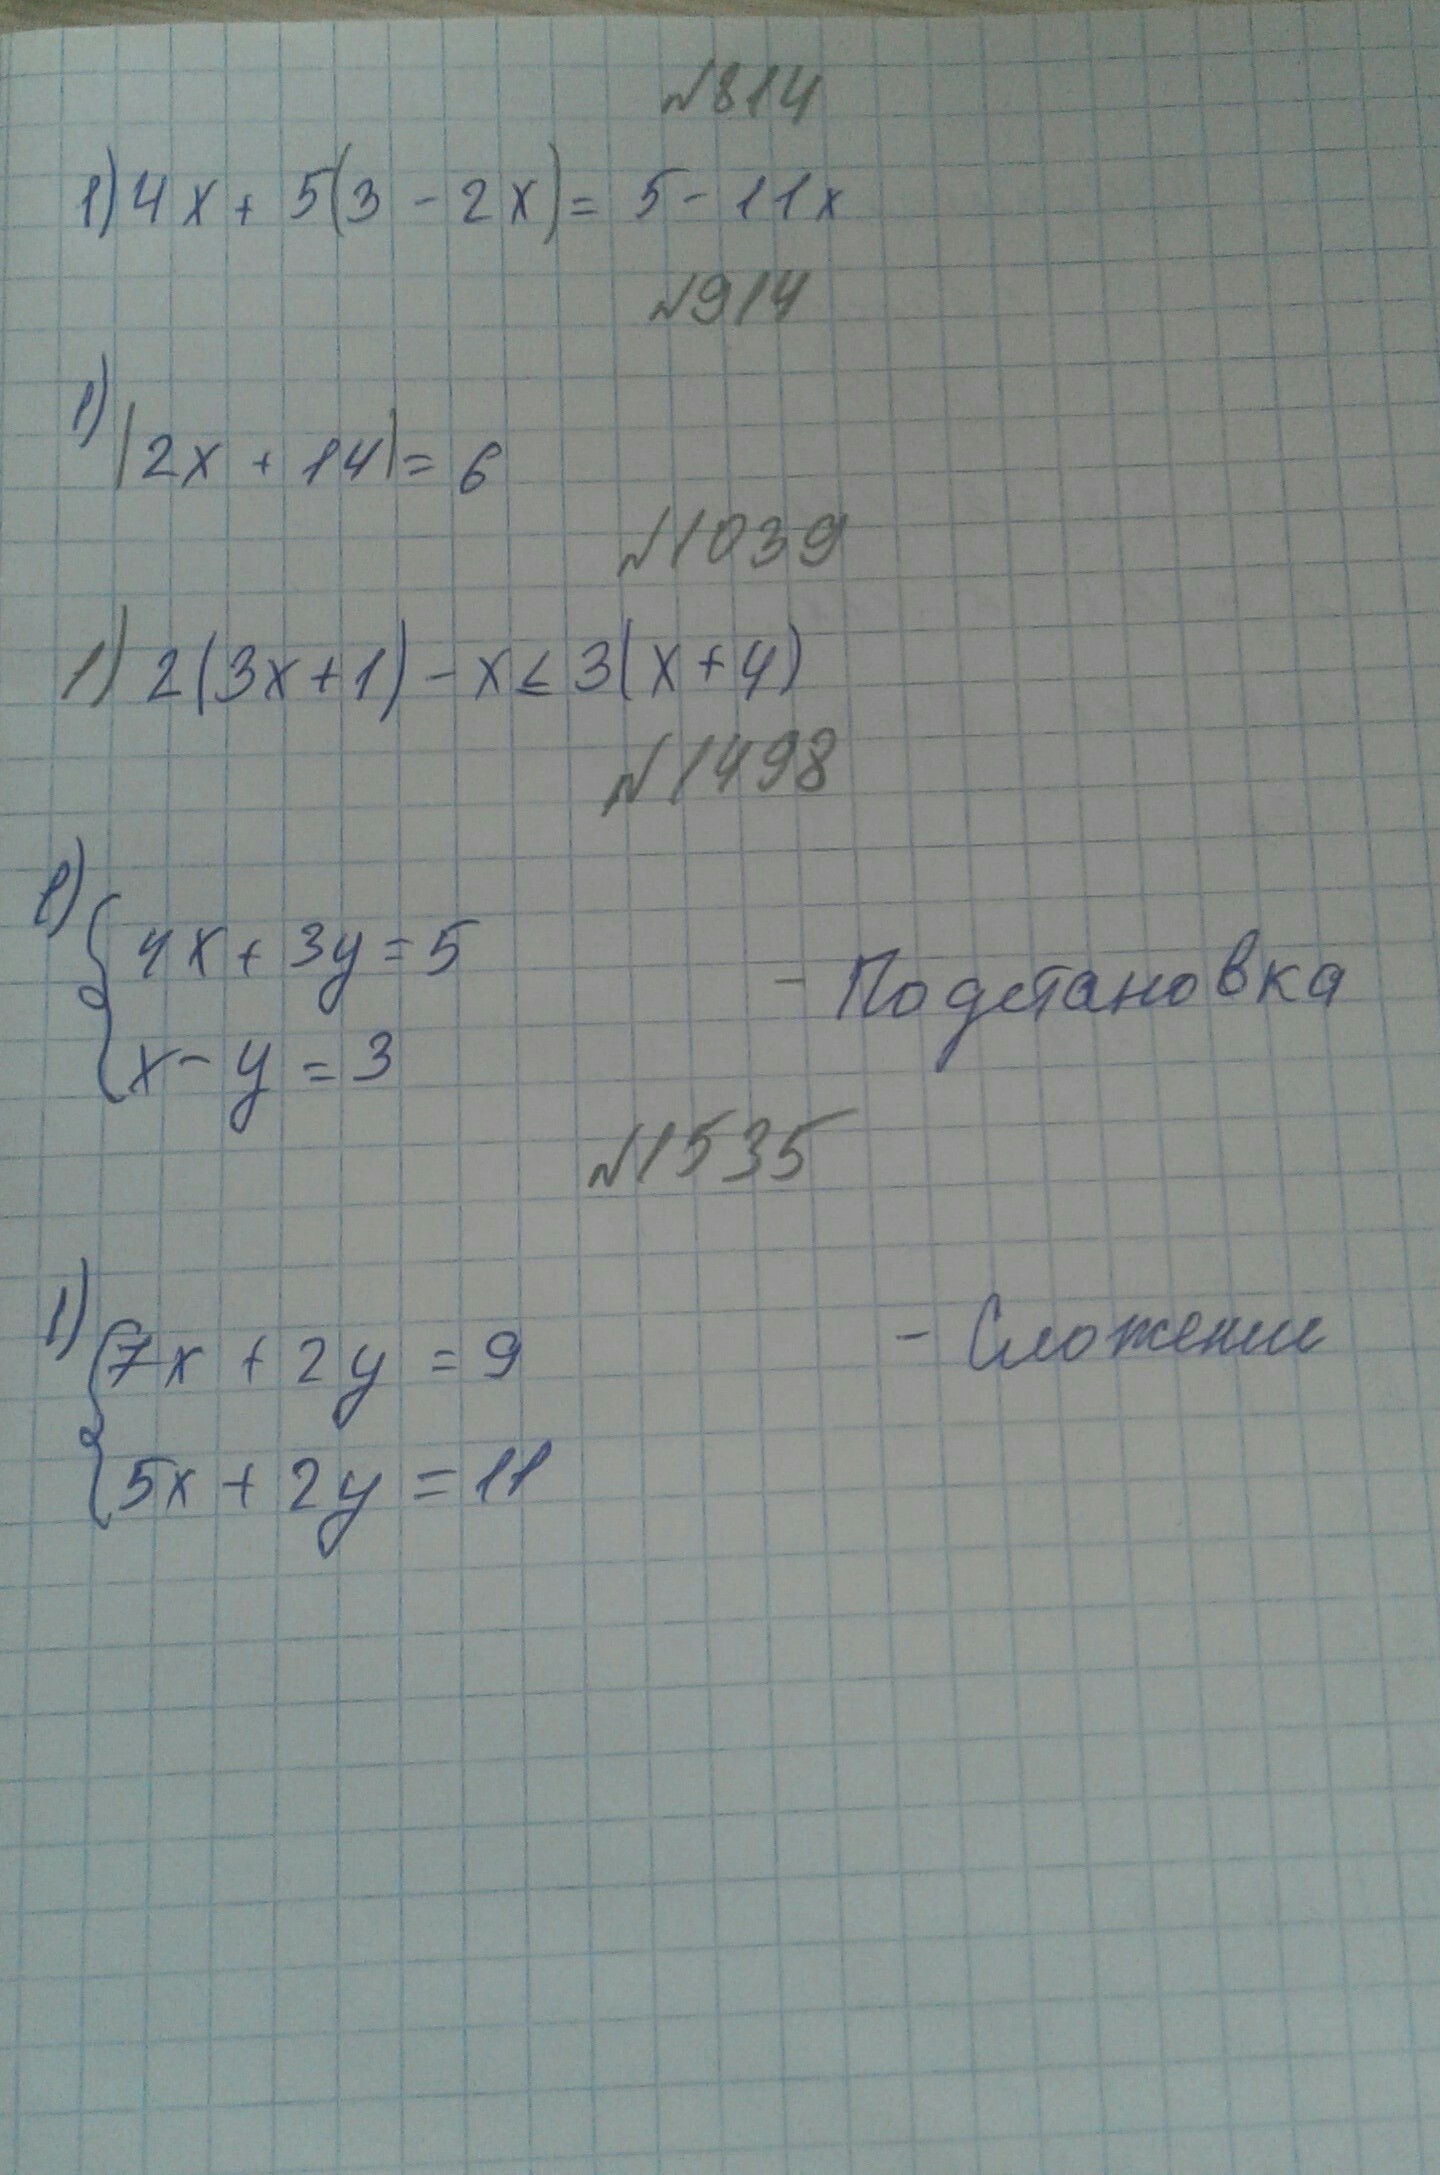 №814
1) 4x + 5(3 - 2x) = 5 - 11x
№914
1) |2x + 14| = 6
№1039
1) 2(3x+1) - x ≤ 3(x+4)
№1498
1) { 4x + 3y = 5 - Подстановка
x - y = 3
№1535
1) { 7x + 2y = 9 - Сложение
5x + 2y = 11